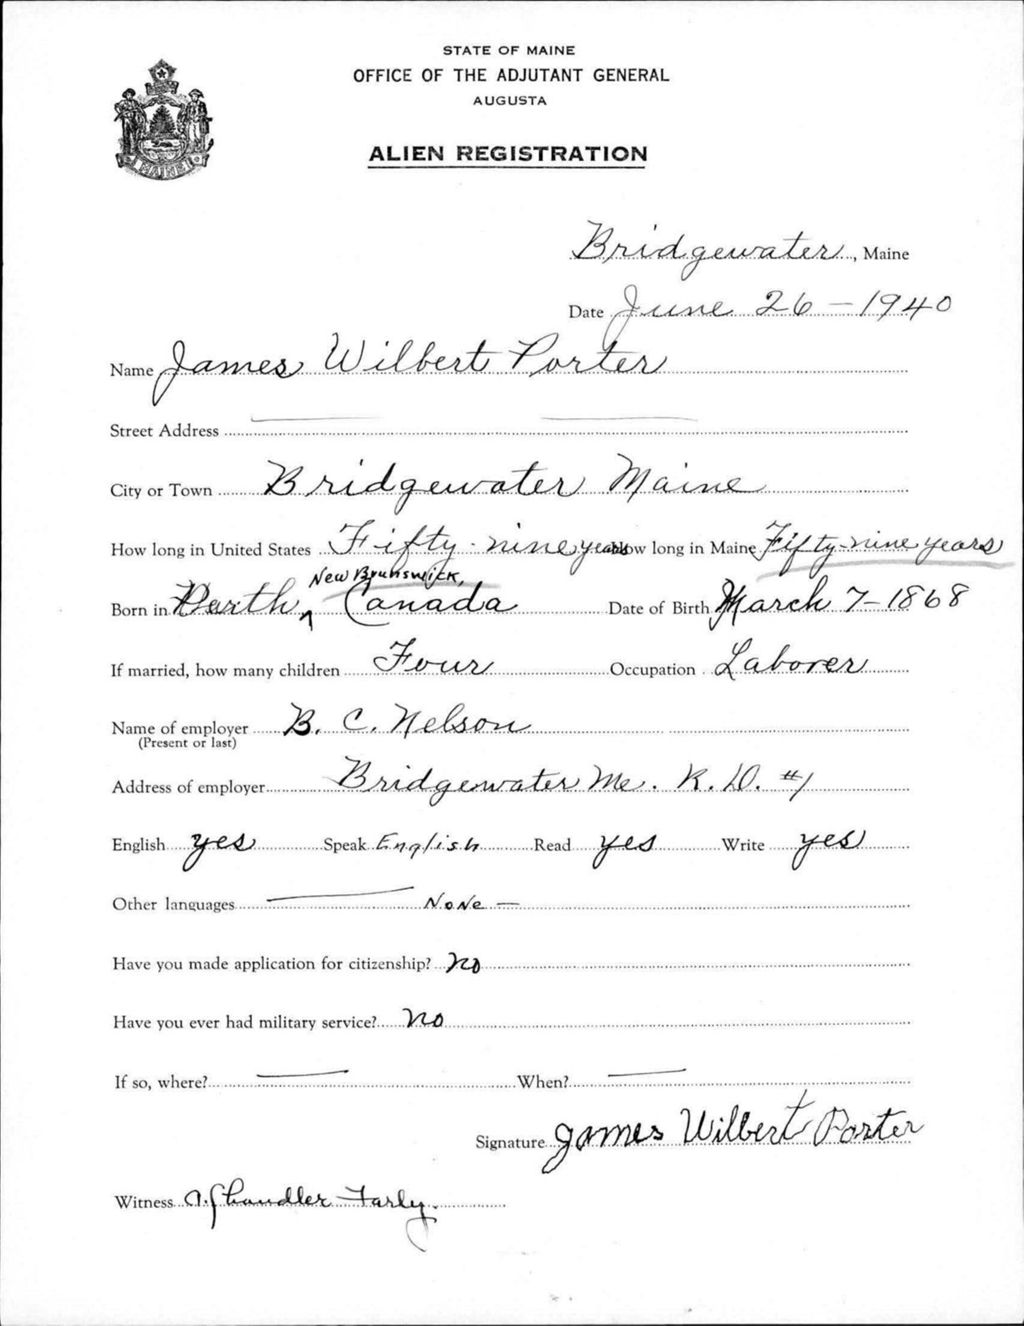 STATE OF MAINE
OFFICE OF THE ADJUTANT GENERAL
AUGUSTA
ALIEN REGISTRATION
MAINE
Bridgewater, Maine
Date June 26-1940
Name James Wilbert Porter
Street Address
City or Town Bridgewater Maine
How long in United States Fifty-nine years How long in Maine Fifty-nine years
New Brunswick,
Born in Perth, Canada Date of Birth March 7-1868
If married, how many children Four Occupation Laborer
Name of employer B. C. Nelson
(Present or last)
Address of employer Bridgewater Me. R.D. #1
English yes Speak English Read yes Write yes
Other languages None —
Have you made application for citizenship? no
Have you ever had military service? no
If so, where? When?
Signature James Wilbert Porter
Witness Chandler